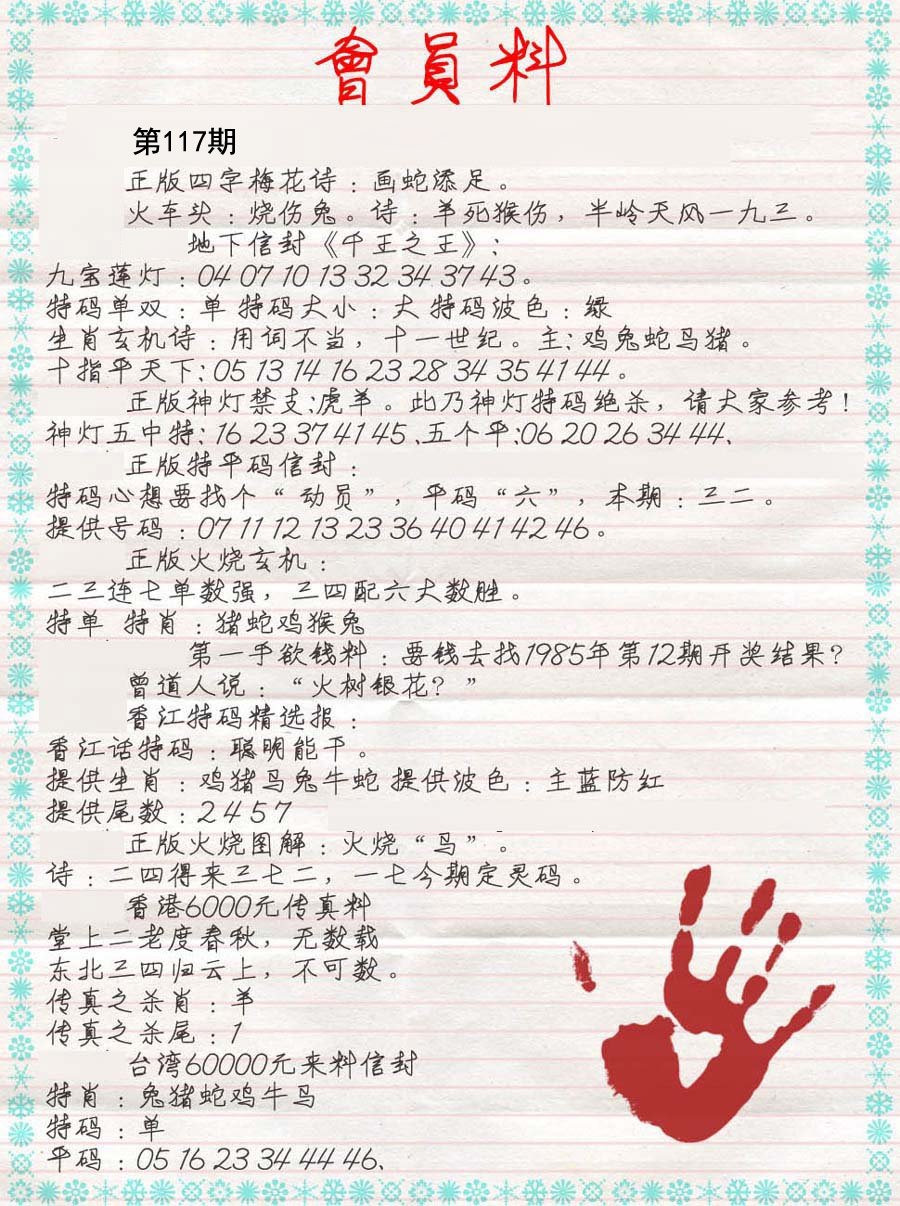 會員料
第117期
正版四字梅花诗：画蛇添足。
火车头：烧伤兔。诗：羊死猴伤，半岭天风一九三。
地下信封《千王之王》：
九宝莲灯：04 07 10 13 32 34 37 43。
特码单双：单 特码大小：大 特码波色：绿
生肖玄机诗：用词不当，十一世纪。主：鸡兔蛇马猪。
十指平天下：05 13 14 16 23 28 34 35 41 44。
正版神灯禁支：虎羊。此乃神灯特码绝杀，请大家参考！
神灯五中特：16 23 37 41 45、五个平：06 20 26 34 44、
正版特平码信封：
特码心想要找个“动员”，平码“六”，本期：三二。
提供号码：07 11 12 13 23 36 40 41 42 46。
正版火烧玄机：
二三连七单数强，三四配六大数胜。
特单 特肖：猪蛇鸡猴兔
第一手欲钱料：要钱去找1985年第12期开奖结果？
曾道人说：“火树银花？”
香江特码精选报：
香江话特码：聪明能干。
提供生肖：鸡猪马兔牛蛇 提供波色：主蓝防红
提供尾数：2 4 5 7
正版火烧图解：火烧“鸟”。
诗：二四得来三七二，一七今期定灵码。
香港6000元传真料
堂上二老度春秋，无数载
东北三四归云上，不可数。
传真之杀肖：羊
传真之杀尾：1
台湾60000元来料信封
特肖：兔猪蛇鸡牛马
特码：单
平码：05 16 23 34 44 46、